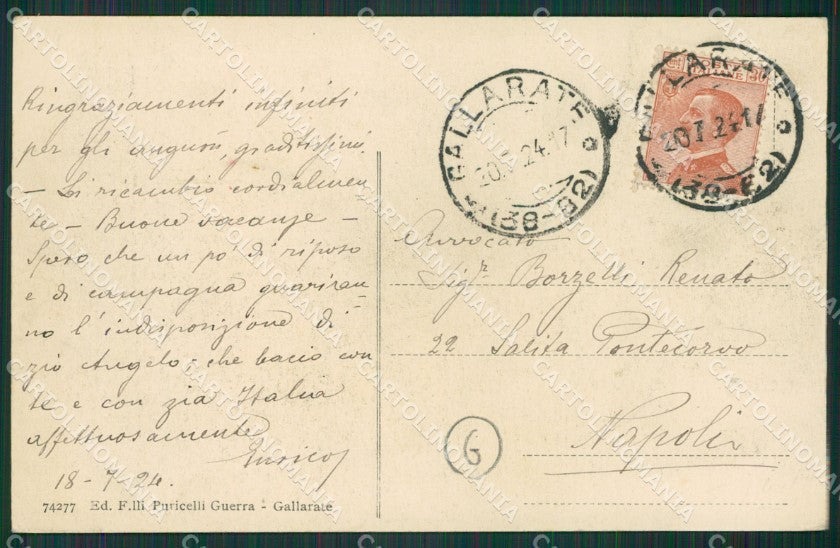 Ringraziamenti infiniti
per gli auguri, graditissimi.
– Li ricambio cordialmen-
te – Buone vacanze –
Spero che un po di riposo
e di campagna guariran-
no l'indisposizione di
zio Angelo, che bacio con
te e con zia Italia
affettuosamente
Enrico
18-7-24.
74277 Ed. F.lli Puricelli Guerra - Gallarate
GALLARATE
24.17
(38-82)
GALLARATE
20.7.24.17
(38-82)
Avvocato
Sigr Borzelli Renato
22 Salita Pontecorvo
Napoli
6
CARTOLINOMANIA